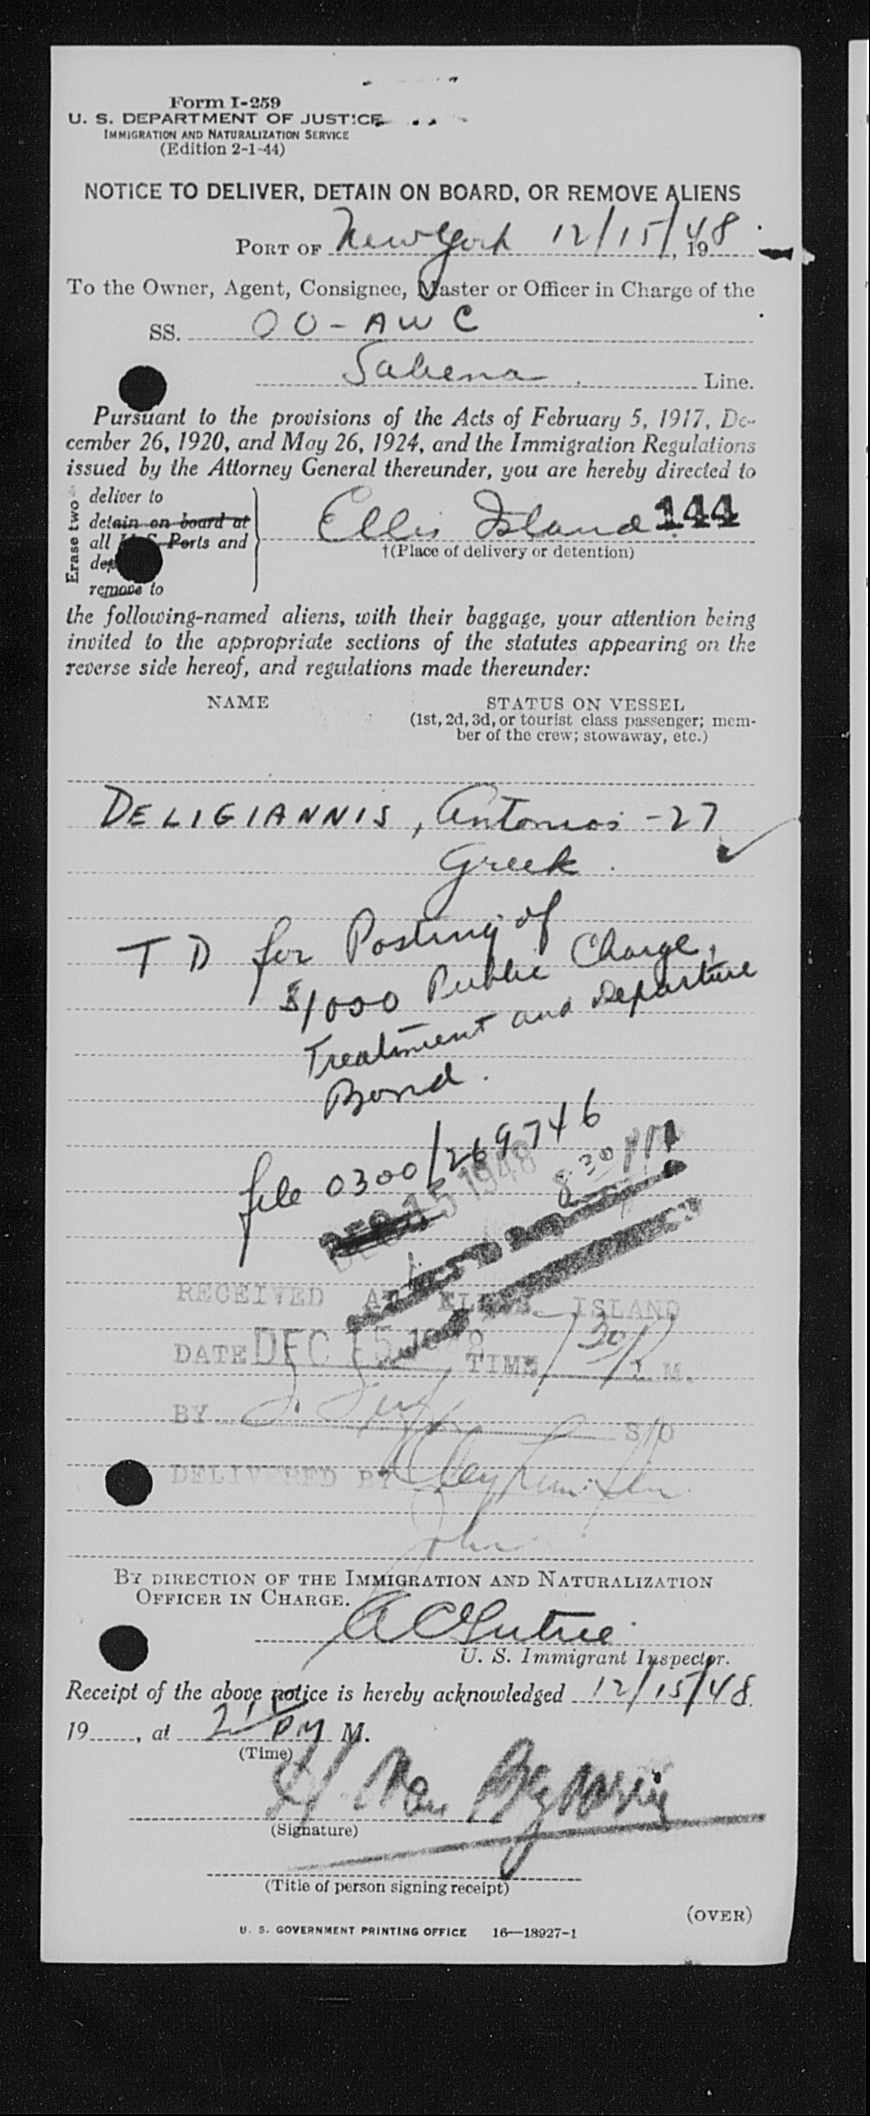 Form I-259
U. S. DEPARTMENT OF JUSTICE
IMMIGRATION AND NATURALIZATION SERVICE
(Edition 2-1-44)
NOTICE TO DELIVER, DETAIN ON BOARD, OR REMOVE ALIENS
PORT OF New York 12/15/, 1948
To the Owner, Agent, Consignee, Master or Officer in Charge of the
SS. OO-AWC
Sabena Line.
Pursuant to the provisions of the Acts of February 5, 1917, De-
cember 26, 1920, and May 26, 1924, and the Immigration Regulations
issued by the Attorney General thereunder, you are hereby directed to
Erase two
deliver to
detain on board at
all U. S. Ports and
remove to
Ellis Island 144
†(Place of delivery or detention)
the following-named aliens, with their baggage, your attention being
invited to the appropriate sections of the statutes appearing on the
reverse side hereof, and regulations made thereunder:
NAME STATUS ON VESSEL
(1st, 2d, 3d, or tourist class passenger; mem-
ber of the crew; stowaway, etc.)
DELIGIANNIS, Antonios - 27
Greek.
T D for Posting of
$1000 Public Charge,
Treatment and Departure
Bond.
file 0300/269746
DEC 15 1948 8:30 PM
RECEIVED AT ELLIS ISLAND
DATE DEC 15 1948 TIME 7 30 P.M.
BY S/O
DELIVERED BY
BY DIRECTION OF THE IMMIGRATION AND NATURALIZATION
OFFICER IN CHARGE.
U. S. Immigrant Inspector.
Receipt of the above notice is hereby acknowledged 12/15/48
19......, at PM M.
(Time)
(Signature)
(Title of person signing receipt)
(OVER)
U. S. GOVERNMENT PRINTING OFFICE 16—18927-1